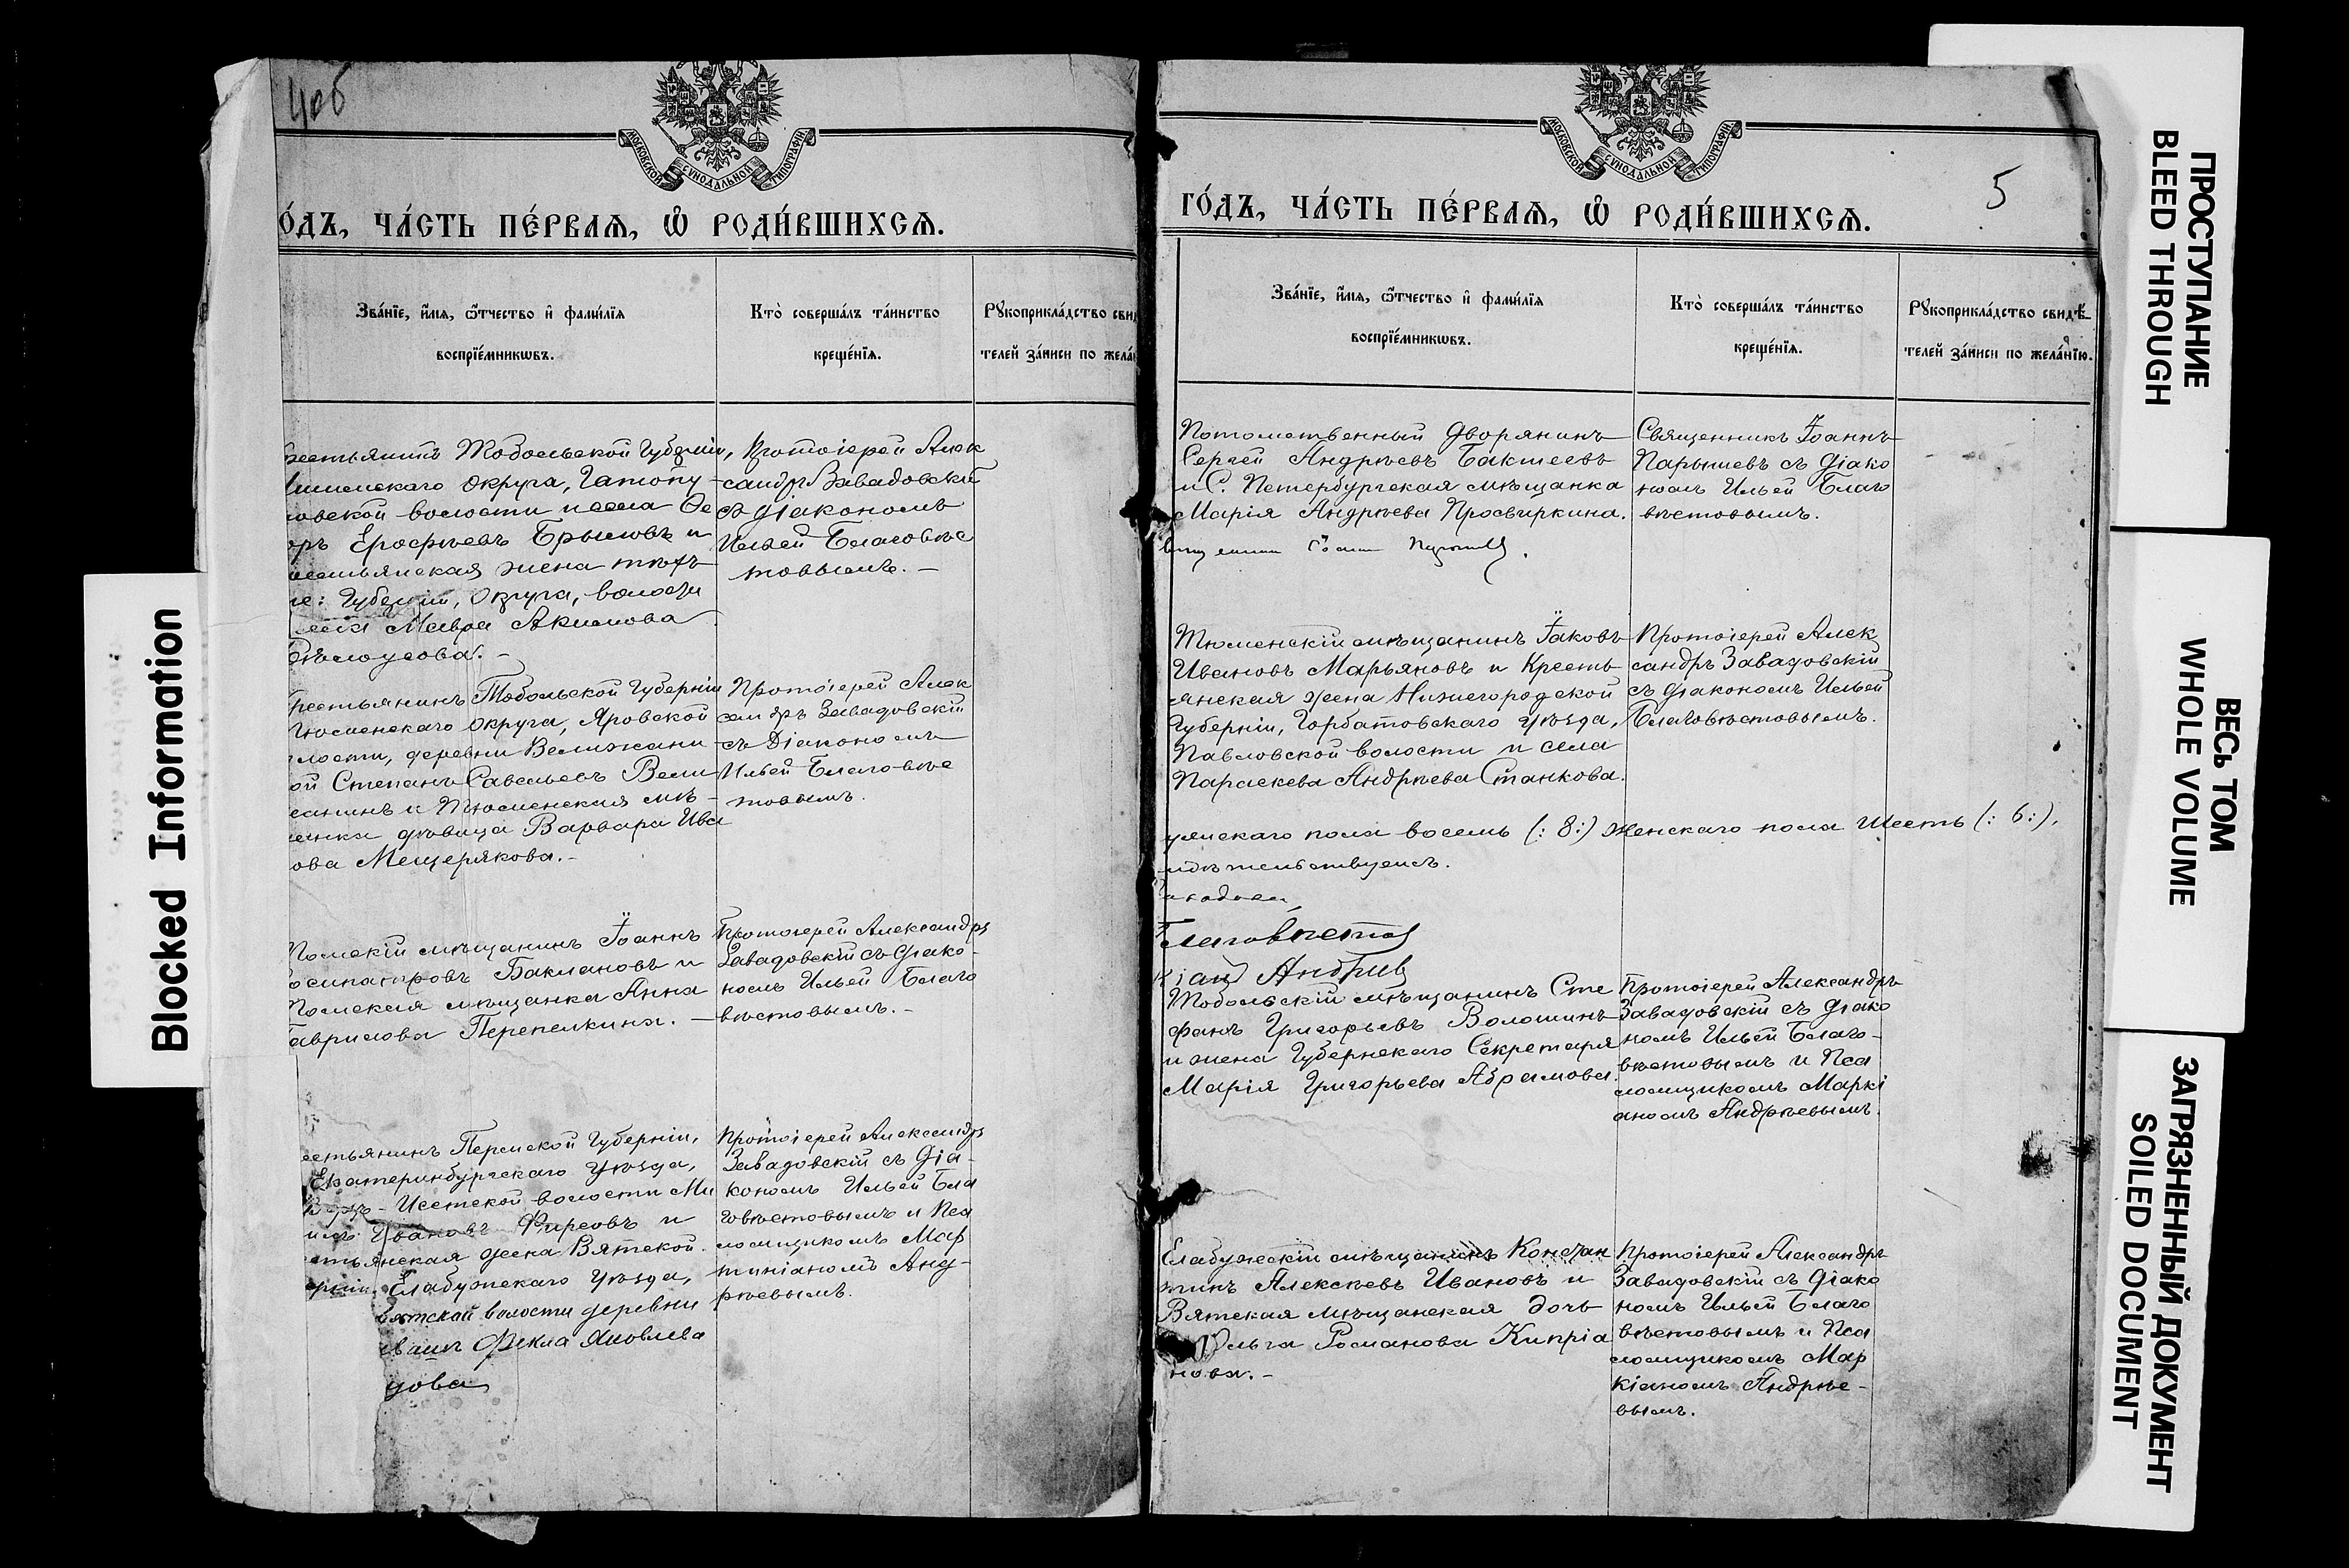 Blocked Information
4об
МОСКОВСКОЙ СѴНОДАЛЬНОЙ ТИПОГРАФІИ
О́ДЪ, ЧА́СТЬ ПЕ́РВАѦ, Ѡ҆ РОДИ́ВШИХСѦ.
Зва́нїе, и҆́мѧ, ѻ҆́тчество и҆ фами́лїѧ
воспрїе́мникѡвъ.
Кто̀ соверша́лъ та́инство
креще́нїѧ.
Рꙋкоприкла́дство сви
телей за́писи по жела́
рестьянинъ Тобольской Губерніи,
Ишимскаго округа, Гатопу-
овской волости и села Ѳе
оръ Ерофѣевъ Брыловъ и
рестьянская жена тѣхъ
же: Губерніи, Округа, волости
села Мавра Акимова
Бѣлоусова. -
Протоіерей Алек
сандръ Завадовскій
съ діакономъ
Ильей Благовѣс
товымъ. -
рестьянинъ Тобольской Губерніи
Тюменскаго округа, Яровской
лости, деревни Велижани
ой Степанъ Савельевъ Вели
жанинъ и Тюменская мѣ-
щанка дѣвица Варвара Ива
ова Мещерякова. -
Протоіерей Алек
сандръ Завадовскій
съ Діакономъ
Ильей Благовѣс
товымъ.
Томскій мѣщанинъ Іоаннъ
осипатровъ Баклановъ и
Томская мѣщанка Анна
Гаврилова Перепелкина. -
Протоіерей Александръ
Завадовскій съ діако-
номъ Ильей Благо
вѣстовымъ. -
естьянинъ Пермской Губерніи,
Екатеринбургскаго уѣзда,
Верх- Исетской волости Ми
Ивановъ Фирсовъ и
стьянская жена Вятской
Елабужскаго уѣзда,
вятской волости деревни
Ѳекла Яковлева
дова
Протоіерей Александръ
Завадовскій съ діа-
кономъ Ильей Бла
говѣстовымъ и Пса
ломщикомъ Мар
тиніаномъ Анд-
рѣевымъ.
МОСКОВСКОЙ СѴНОДАЛЬНОЙ ТИПОГРАФІИ
5
ГО́ДЪ, ЧА́СТЬ ПЕ́РВАѦ, Ѡ҆ РОДИ́ВШИХСѦ.
Зва́нїе, и҆́мѧ, ѻ҆́тчество и҆ фами́лїѧ
воспрїе́мникѡвъ.
Кто̀ соверша́лъ та́инство
креще́нїѧ.
Рꙋкоприкла́дство свидѣ́-
телей за́писи по жела́нїю.
Потомственный Дворянинъ
Сергей Андрѣевъ Бактеевъ
и С. Петербургская мѣщанка
Марія Андрѣева Просвиркина.
Священникъ Іоаннъ
Парышевъ съ діако
номъ Ильей Благо
вѣстовымъ.
Тюменскій мѣщанинъ Іаковъ
Ивановъ Марьяновъ и Кресть
янская жена Нижегородской
Губерніи, Горбатовскаго уѣзда,
Павловской волости и села
Параскева Андрѣева Станкова.
Протоіерей Алек
сандръ Завадовскій
съ діакономъ Ильей
Благовѣстовымъ.
ужскаго пола восемь (: 8:) женскаго пола шесть (: 6:),
идѣтельствуемъ.
Благовѣстов
кіан Андрѣев
Тобольскій мѣщанинъ Сте
фанъ Григорьевъ Волошинъ
и жена Губернскаго Секретаря
Марія Григорьева Абрамова.
Протоіерей Александръ
Завадовскій съ діако
номъ Ильей Благо-
вѣстовымъ и Пса
ломщикомъ Маркі
аномъ Андрѣевымъ.
Елабужскій мѣщанинъ Констан
тинъ Алексѣевъ Ивановъ и
Вятская мѣщанская дочь
Ольга Романова Кипріа
нова. -
Протоіерей Александръ
Завадовскій съ діако
номъ Ильей Благо
вѣстовымъ и Пса
ломщикомъ Мар
кіаномъ Андрѣе-
вымъ.
ПРОСТУПАНИЕ
BLEED THROUGH
ВЕСЬ ТОМ
WHOLE VOLUME
ЗАГРЯЗНЕННЫЙ ДОКУМЕНТ
SOILED DOCUMENT